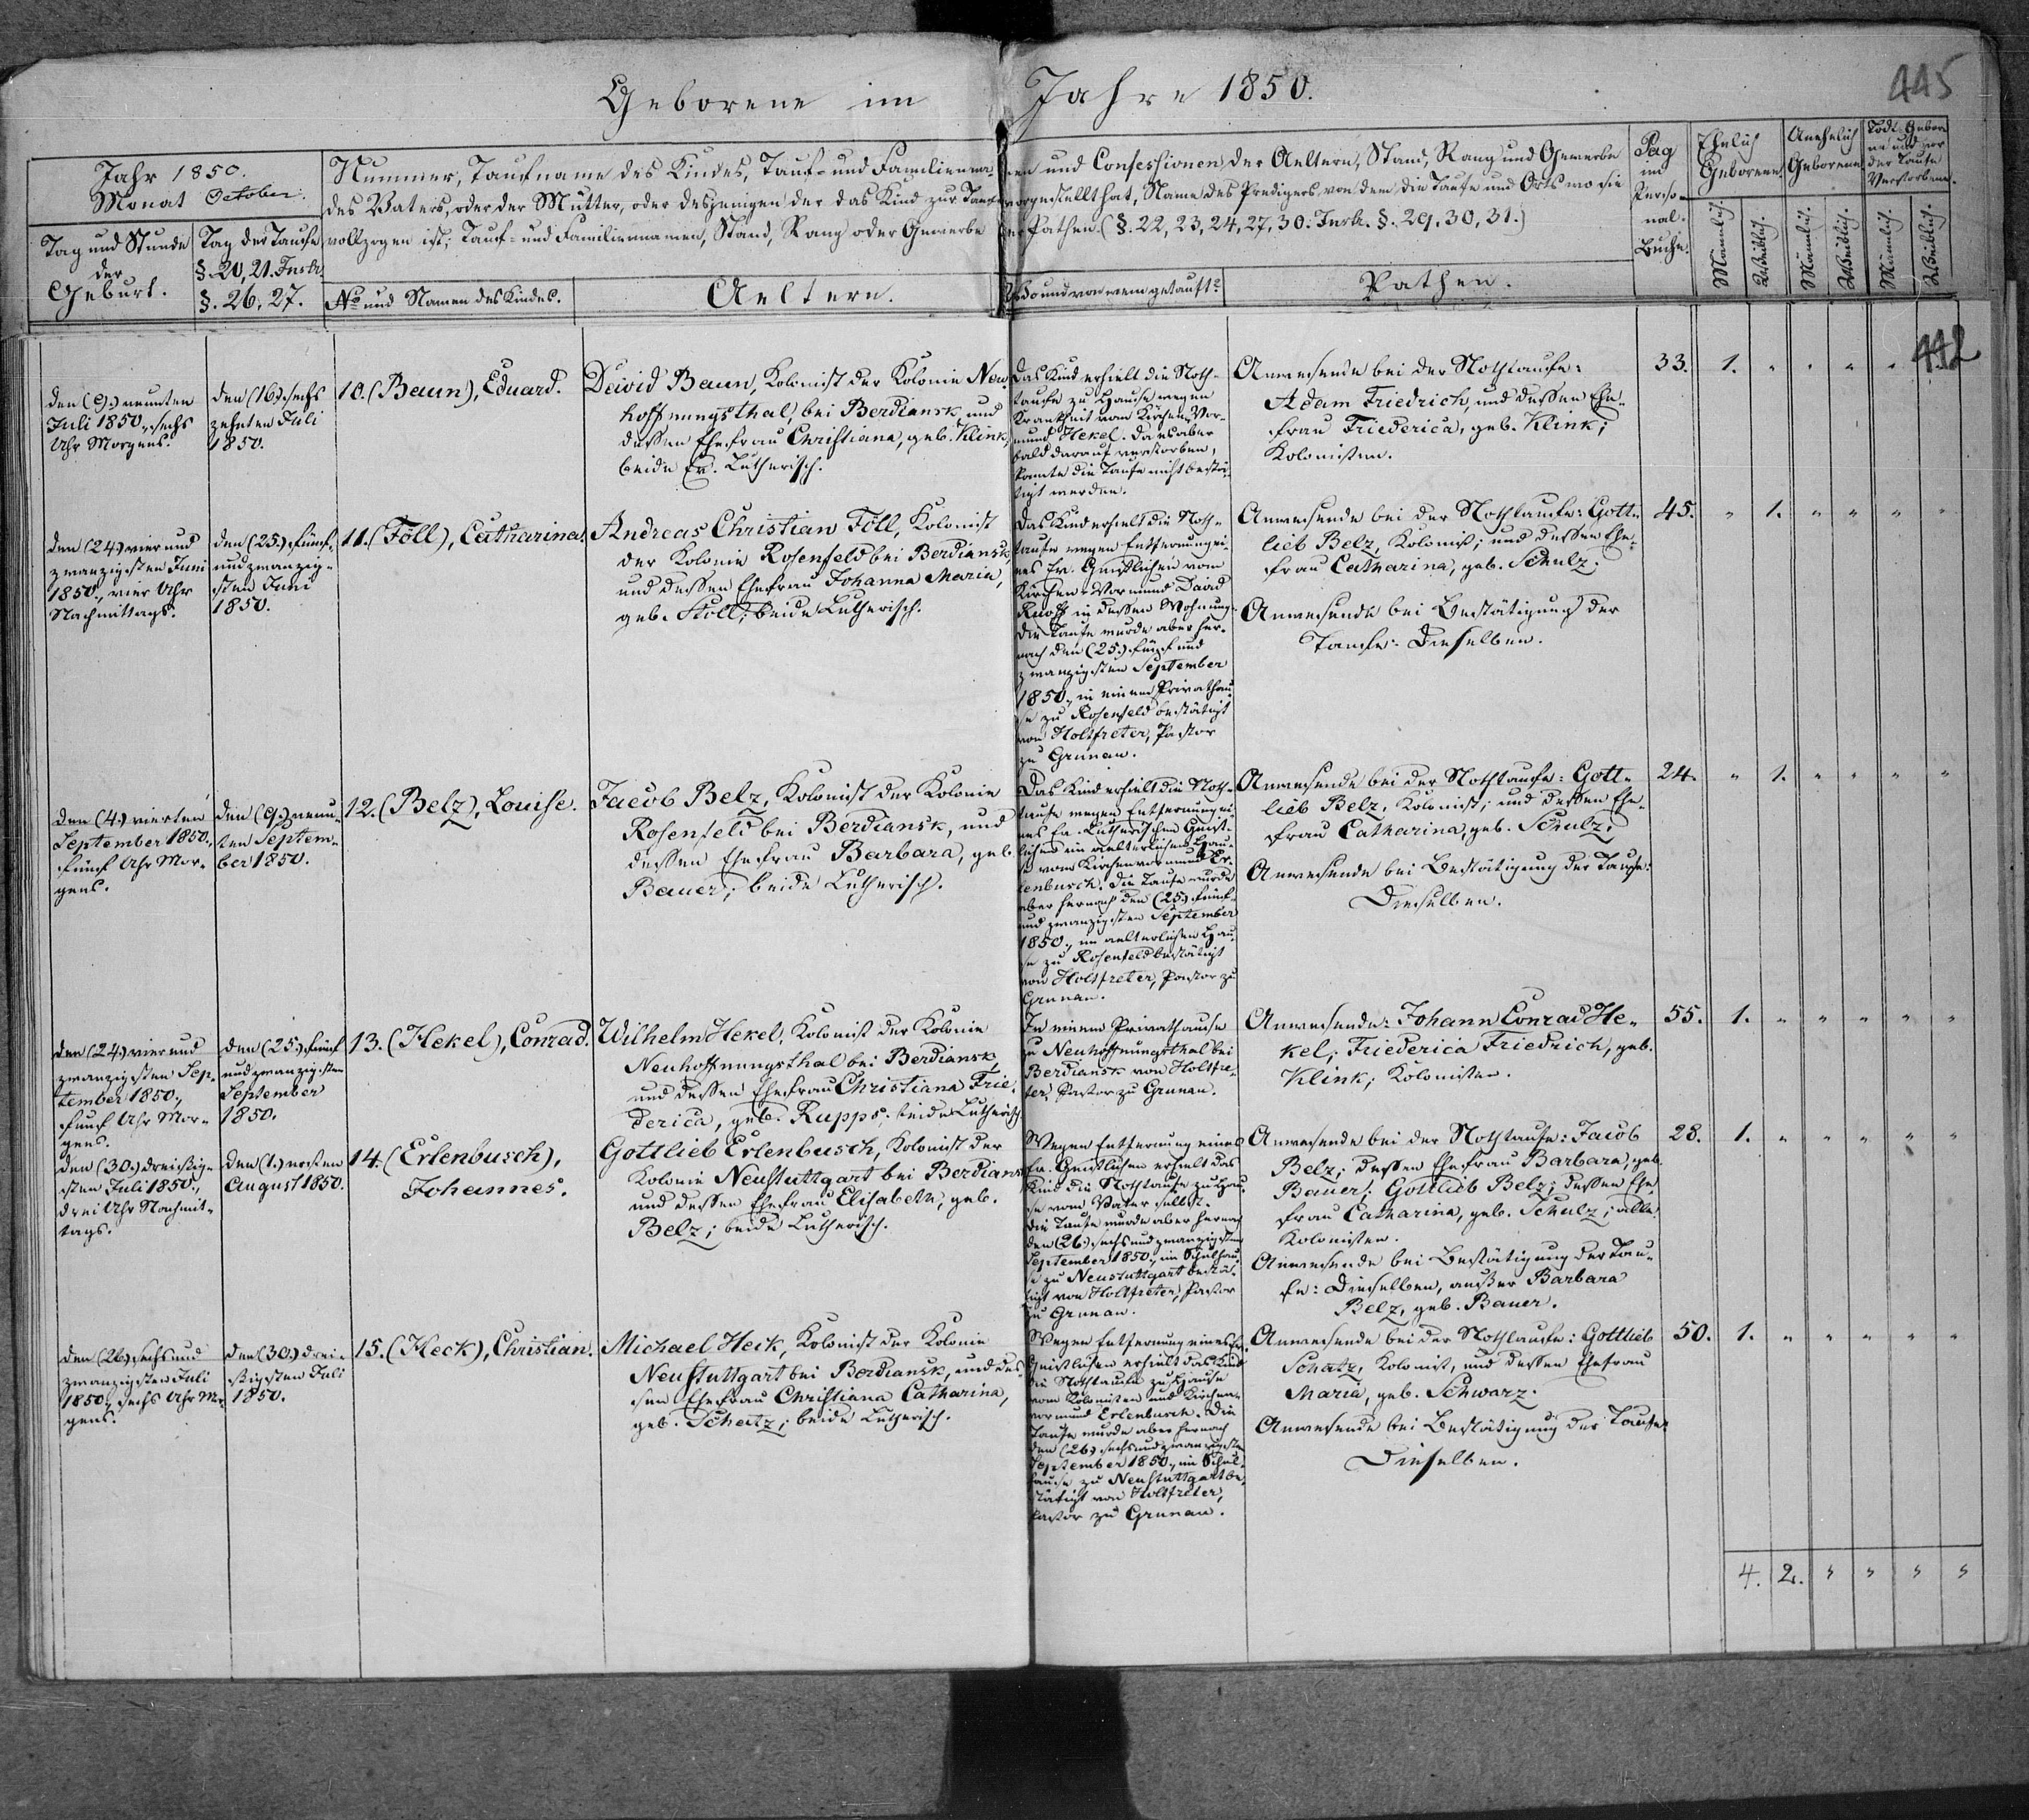 Geborene im Jahre 1850.
445
Jahr 1850.
Monat October.
Tag und Stunde
der
Geburt.
Tag der Taufe
§. 20, 21. Instr.
§. 26, 27.
Nummer, Taufname des Kindes, Tauf- und Familienna-men und Confessionen der Aeltern, Stand, Rang und Gewerbe
des Vaters, oder der Mutter, oder desjenigen der das Kind zur Taufe vorgestellt hat, Name des Predigers von dem die Taufe und Orts wo sie
vollzogen ist; Tauf- und Familiennamen, Stand, Rang oder Gewerbe der Pathen. (§. 22, 23, 24, 27, 30. Instr. §. 29, 30, 31.)
No und Namen des Kindes.
Aeltern.
Wo und von wem getauft?
Pathen.
Pag
im
Perso-
nal-
Buche.
Ehelich
Geborene.
Unehelich
Geborene.
Todt-Gebore
ne und vor
der Taufe
Verstorbene.
Männlich.
Weiblich.
Männlich.
Weiblich.
Männlich.
Weiblich.
442
den (9.) neunten
Juli 1850., sechs
Uhr Morgens.
den (16.) sechs
zehnten Juli
1850.
10. (Baun), Eduard.
David Baun, Kolonist der Kolonie Neu-
hoffnungsthal, bei Berdiansk und
dessen Ehefrau Christiana, geb. Klink,
beide Ev. Lutherisch.
Das Kind erhielt die Noth-
taufe zu Hause wegen
Krankheit vom Kirchen-Vor-
mund Hekel. Da es aber
bald darauf verstorben,
konnte die Taufe nicht bestä-
tigt werden.
Anwesende bei der Nothtaufe:
Adam Friedrich, und dessen Ehe-
frau Friederica, geb. Klink;
Kolonisten.
33. 1. " " " "
den (24.) vier und
zwanzigsten Juni
1850., vier Uhr
Nachmittags.
den (25.) fünf-
und zwanzig-
sten Juni
1850.
11. (Föll), Catharina.
Andreas Christian Föll, Kolonist
der Kolonie Rosenfeld bei Berdiansk,
und dessen Ehefrau Johanna Maria,
geb. Stoll; beide Lutherisch.
Das Kind erhielt die Noth-
taufe wegen Entfernung ei-
nes Ev. Geistlichen vom
Kirchen-Vormund David
Ruoff in dessen Wohnung.
Die Taufe wurde aber her-
nach den (25.) fünf und
zwanzigsten September
1850., in einem Privathau-
se zu Rosenfeld bestätigt
von Holtfreter, Pastor
zu Grunau.
Anwesende bei der Nothtaufe: Gott-
lieb Belz, Kolonist; und dessen Ehe-
frau Catharina, geb. Schulz.
Anwesende bei Bestätigung der
Taufe: Dieselben.
45. " 1. " " " "
den (4.) vierten
September 1850.,
fünf Uhr Mor-
gens.
den (9.) neun-
ten Septem-
ber 1850.
12. (Belz), Louise.
Jacob Belz, Kolonist der Kolonie
Rosenfeld bei Berdiansk, und
dessen Ehefrau Barbara, geb.
Bauer; beide Lutherisch.
Das Kind erhielt die Noth-
taufe wegen Entfernung ei-
nes Ev. Lutherischen Geist-
lichen im aelterlichen Hau-
se vom Kirchenvormund Er-
lenbusch. Die Taufe wurde
aber hernach den (25.) fünf-
und zwanzigsten September
1850., im aelterlichen Hau-
se zu Rosenfeld bestätigt
von Holtfreter, Pastor zu
Grunau.
Anwesende bei der Nothtaufe: Gott-
lieb Belz, Kolonist; und dessen Ehe-
frau Catharina, geb. Schulz;
Anwesende bei Bestätigung der Taufe:
Dieselben.
24. " 1. " " " "
den (24.) vier und
zwanzigsten Sep-
tember 1850.,
fünf Uhr Mor-
gens.
den (25.) fünf
und zwanzigsten
September
1850.
13. (Hekel), Conrad.
Wilhelm Hekel, Kolonist der Kolonie
Neuhoffnungsthal bei Berdiansk,
und dessen Ehefrau Christiana Frie-
derica, geb. Rupps; beide Lutherisch
In einem Privathause
zu Neuhoffnungsthal bei
Berdiansk von Holtfre-
ter, Pastor zu Grunau.
Anwesende: Johann Conrad He-
kel; Friederica Friedrich, geb.
Klink; Kolonisten.
55. 1. " " " " "
den (30.) dreißig-
sten Juli 1850.,
drei Uhr Nachmit-
tags.
den (1.) ersten
August 1850.
14. (Erlenbusch),
Johannes.
Gottlieb Erlenbusch, Kolonist der
Kolonie Neustuttgart bei Berdiansk
und dessen Ehefrau Elisabeth, geb.
Belz; beide Lutherisch.
Wegen Entfernung eines
Ev. Geistlichen erhielt das
Kind die Nothtaufe zu Hau-
se vom Vater selbst.
Die Taufe wurde aber hernach
den (26.) sechs und zwanzigsten
September 1850., im Schulhau-
se zu Neustuttgart bestä-
tigt von Holtfreter, Pastor
zu Grunau.
Anwesende bei der Nothtaufe: Jacob
Belz; dessen Ehefrau Barbara, geb.
Bauer; Gottlieb Belz; dessen Ehe-
frau Catharina, geb. Schulz; alle
Kolonisten.
Anwesende bei Bestätigung der Tau-
fe: Dieselben, außer Barbara
Belz, geb. Bauer.
28. 1. " " " " "
den (26.) sechs und
zwanzigsten Juli
1850., sechs Uhr Mor-
gens.
den (30.) drei-
ßigsten Juli
1850.
15. (Heck), Christian.
Michael Heck, Kolonist der Kolonie
Neustuttgart bei Berdiansk, und des-
sen Ehefrau Christiana Catharina,
geb. Schatz; beide Lutherisch.
Wegen Entfernung eines Ev.
Geistlichen erhielt das Kind
die Nothtaufe zu Hause
vom Kolonisten und Kirchen-
vormund Erlenbusch. Die
Taufe wurde aber hernach
den (26.) sechs und zwanzigsten
September 1850., im Schul-
hause zu Neustuttgart be-
stätigt von Holtfreter,
Pastor zu Grunau.
Anwesende bei der Nothtaufe: Gottlieb
Schatz, Kolonist, und dessen Ehefrau
Maria, geb. Schwarz.
Anwesende bei Bestätigung der Taufe:
Dieselben.
50. 1. " " " " "
4. 2. " " " "